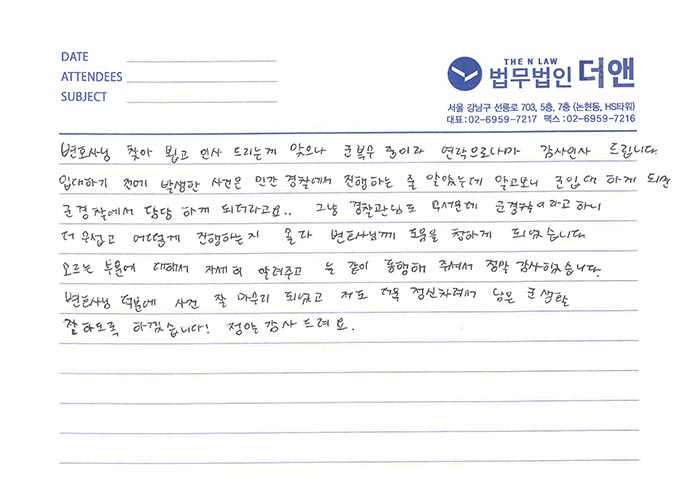 DATE
ATTENDEES
SUBJECT
THE N LAW
법무법인 더앤
서울 강남구 선릉로 703, 5층, 7층 (논현동, HS타워)
대표:02-6959-7217 팩스:02-6959-7216
변호사님 찾아 뵙고 인사 드리는게 맞으나 군복무 중이라 연락으로나마 감사인사 드립니다.
입대하기 전에 발생한 사건은 민간 경찰에서 진행하는 줄 알았는데 알고보니 군입대 하게 되면
군경찰에서 담당 하게 되더라고요.. 그냥 경찰관님도 무서운데 군경찰이라고 하니
더 무섭고 어떻게 진행하는지 몰라 변호사님께 도움을 청하게 되었습니다.
모르는 부분에 대해서 자세히 알려주고 늘 같이 동행해 주셔서 정말 감사했습니다.
변호사님 덕분에 사건 잘 마무리 되었고 저도 더욱 정신차려서 남은 군생활
잘 하도록 하겠습니다! 정말 감사 드려요.